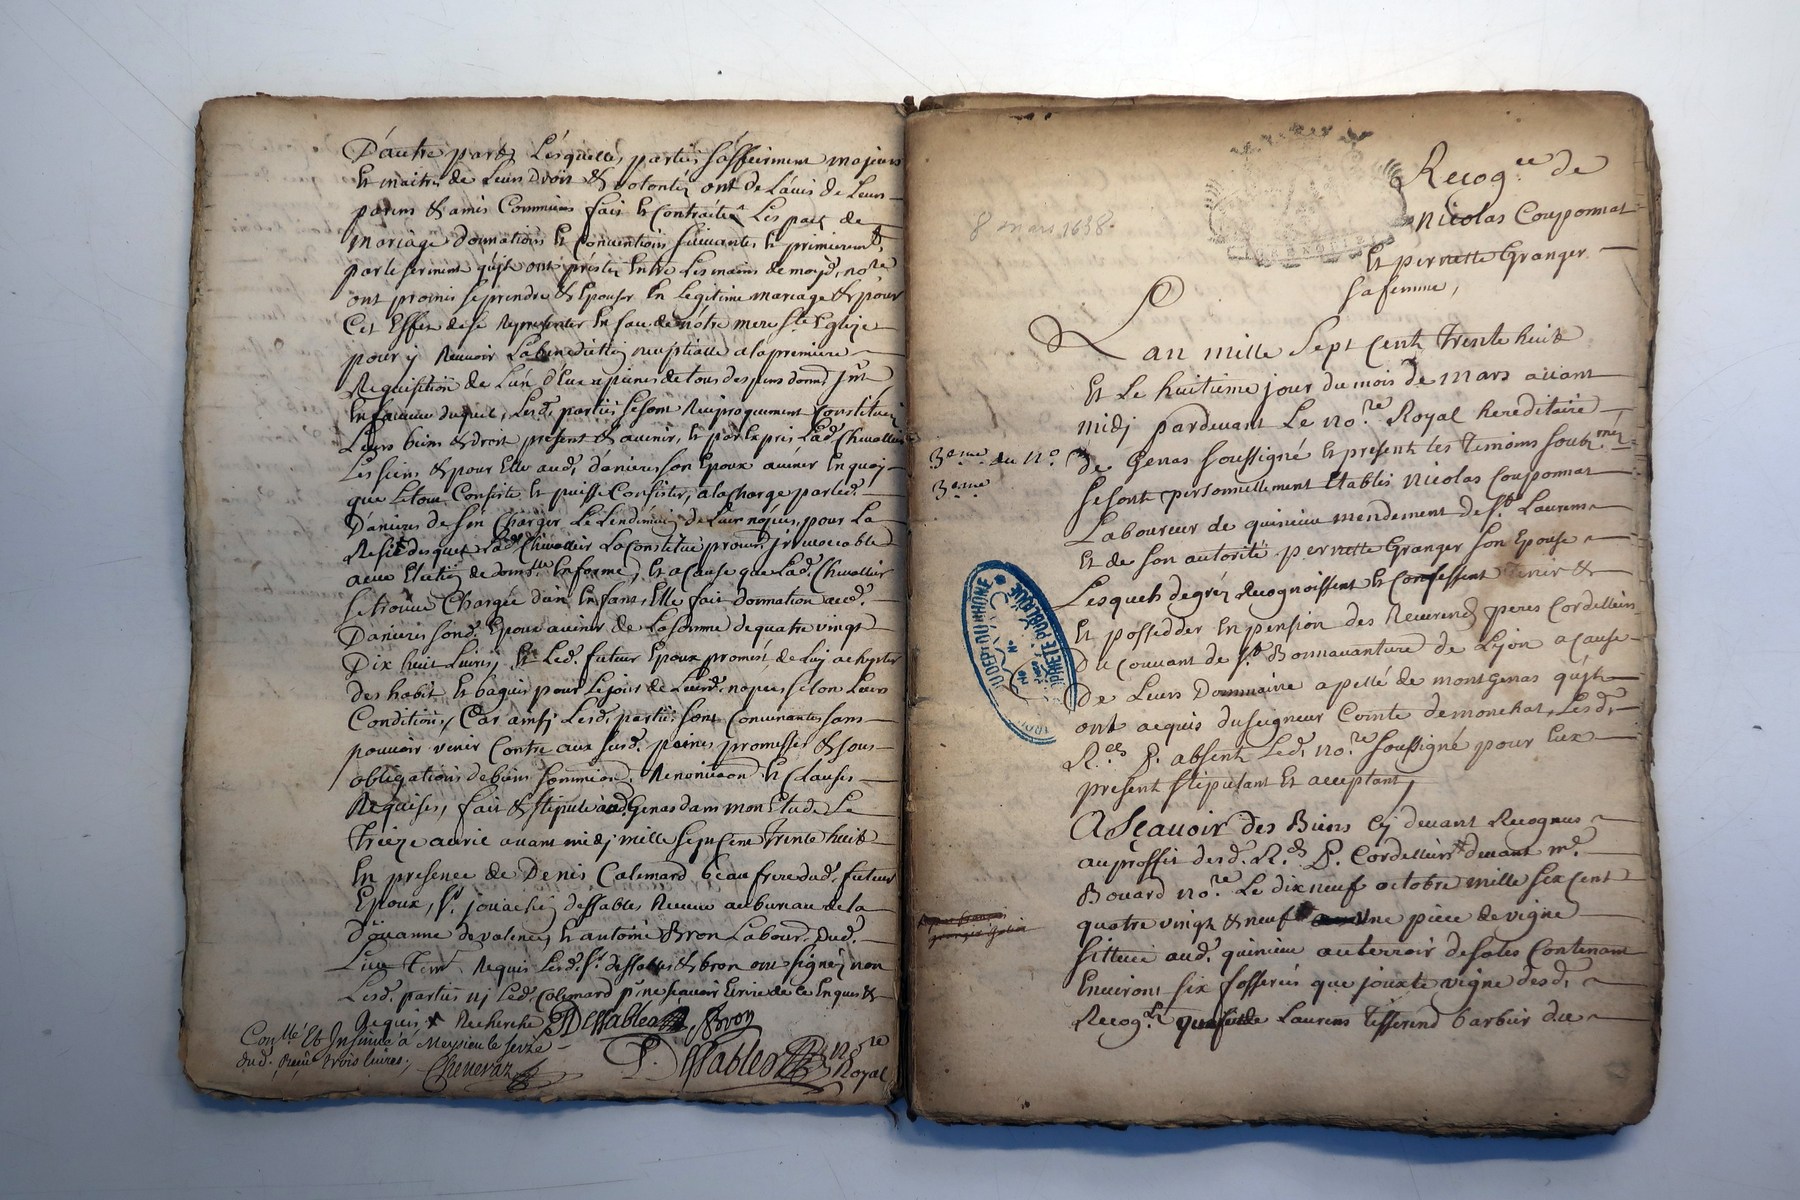 D'autre part, Lesquelles parties s'afferiment majeurs
Et maitres de Leurs Droits & volontéz ont de L'auis de Leurs
parens & amis Communs fait & contracté Les pact de
mariage donnations Et Conventions suiuantes & premierement
par le serment qu'jls ont prestéz Entre Les mains de moyd. no.re
ont promis se prendre & Epouser En Legitime mariage & pour
Cet Effet de se Representer En face de nôtre mere S.te Eglize
pour y Receuoir La benediction nuptialle a la premiere
Requisition de L'un d'Eux a peines de tous despens domd. Jnt.
En faueur duquel, Lesd. parties se sont Reciproquement Constitués
Leurs biens & droits present & auenir, & par Exprés Lad. Cheuallier
Les siens & pour Elle aud. d'anieres son Epoux auenir En quoy
que Le tout Consiste Et puisse Consister, a la Charge par led.
D'anieres de s'en Charger Le Lendemain de Leur nopces, pour La
Reste desquels Lad. Cheuallier La Constitue procur. jrreuocable
auec Election de domlle En forme, Et a Cause que Lad. Cheuallier
se trouue Chargée d'un Enfant, Elle fait donnation aud.
D'anieres sond. Epoux auenir de La somme de quatre vingt
Dix huit Liures, Et Led. futeur Epoux promet de Luy achepter
des habits Et bagues pour Le jour de Leursd. nopces selon Leurs
Conditions, Car ainsy Lesd. parties sont Conuenantes sans
pouuoir venir Contre aux susd. peines promesses & sous
obligations de biens soummiond. Renonciaond Et Clauses
Requises, fait & stipulé aud. Genas dans mon Etude Le
treize auril auant midj mille sept Cent trente huit
En presence de Denis Calemard beaufrere dud. futeur
Epoux, S.r joüachin dessables Receueur au bureau de la
doüanne de valence, & antoine Bron Labour. dud.
Lieu tem. Requis Lesd. S.r dessables & bron ont signéz non
Lesd. parties nj Led. Calemard p.r ne scauoir Ecrire de Ce Enquis &
Requis & Recherche, Dessables, Bron
Conllé Et Jnsinué à Meysieu le seize
dud. Reçu trois liures. Cheneraz
P. Dessables no.re Royal
8 mars 1638.
Recog.ce de
nicolas Couponnat
Et pernette Granger
sa femme,
L'an mille Sept Cent trente huit
Et Le huitieme jour du mois de mars auant
midj pardeuant Le no.re Royal hereditaire
3eme du n°
de Genas soussigné Et present les temoins soubz.mez
3eme
se sont personnellement Etablis nicolas Couponnat
Laboureur de quincieu mendement de S.t Laurens
Et de son autorité pernette Granger son Epouse
Lesquels de gréz Recognoissent Et Confessent tenir &
Et possedder En pension des Reuerends peres Cordelliers
Du Couuant de S.t Bonnauanture de Lyon a cause
De Leurs Dommaine apellé de montgenas qu'jls
ont acquis du seigneur Comte de monchat, Lesd.
R.ds P. absents Led. no.re soussigné pour Eux
present stipulant Et acceptant,
A Sçauoir des Biens Cj deuant Recognus
au proffit desd. R.ds P. Cordelliers deuant m.e
Bouard no.re Le dix neuf octobre mille six cent
quatre vingt & neuf Une piece de vigne
sittuée aud. quincieu au terroir de soles Contenant
Enuirons six fosserées que jouxte vigne desd.
Recog.ts Laurens tisserend barbier du
DEP.T DU RHÔNE